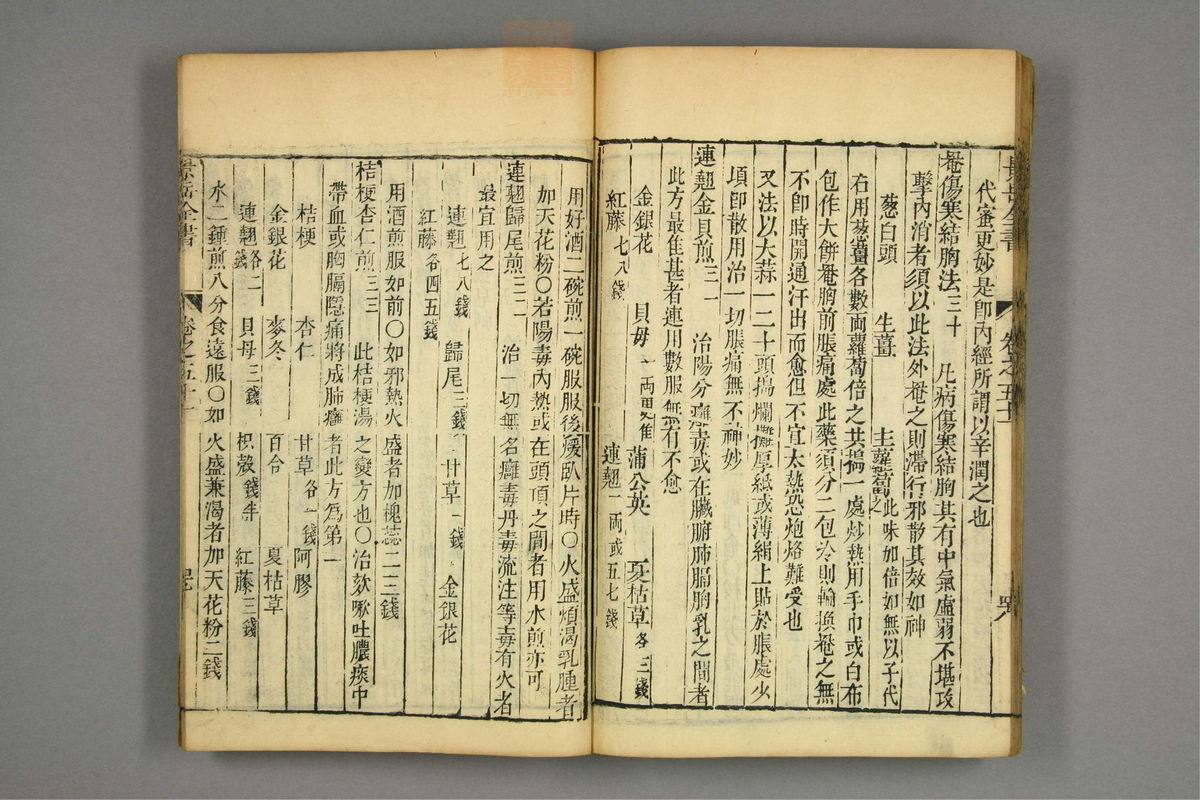 代蜜更妙是卽內經所謂以辛潤之也
罨傷寒結胸法三十　凡病傷寒結胸其有中氣虛弱不堪攻
擊內消者須以此法外罨之則滯行邪散其效如神
葱白頭　生薑　生蘿蔔此味加倍如無以子代之
右用葱薑各數兩蘿蔔倍之共搗一處炒熱用手巾或白布
包作大餅罨胸前脹痛處此藥須分二包冷則輪換罨之無
不卽時開通汗出而愈但不宜太熱恐炮烙難受也
又法以大蒜一二十頭搗爛攤厚紙或薄絹上貼於脹處少
頃卽散用治一切脹痛無不神妙
連翹金貝煎三一　治陽分癰毒或在臟腑肺膈胸乳之間者
此方最隹甚者連用數服無有不愈
金銀花　貝毋　蒲公英　夏枯草各三錢
紅藤七八錢　連翹一兩或五七錢
用好酒二碗煎一碗服服後煖臥片時○火盛煩渴乳腫者
加天花粉○若陽毒內熱或在頭頂之間者用水煎亦可
連翹歸尾煎三二　治一切無名癰毒丹毒流注等毒有火者
最宜用之
連翹七八錢　歸尾三錢　甘草一錢　金銀花
紅藤各四五錢
用酒煎服如前○如邪熱火盛者加槐蕊二三錢
桔梗杏仁煎三三　此桔梗湯之變方也○治欬嗽吐膿痰中
帶血或胸膈隱痛將成肺癰者此方爲第一
桔梗　杏仁　甘草各一錢　阿膠
金銀花　麥冬　百合　夏枯草
連翹各二錢　貝母三錢　枳殼錢半　紅藤三錢
水二鍾煎八分食遠服○如火盛兼渴者加天花粉二錢
景岳全書　卷之五十一